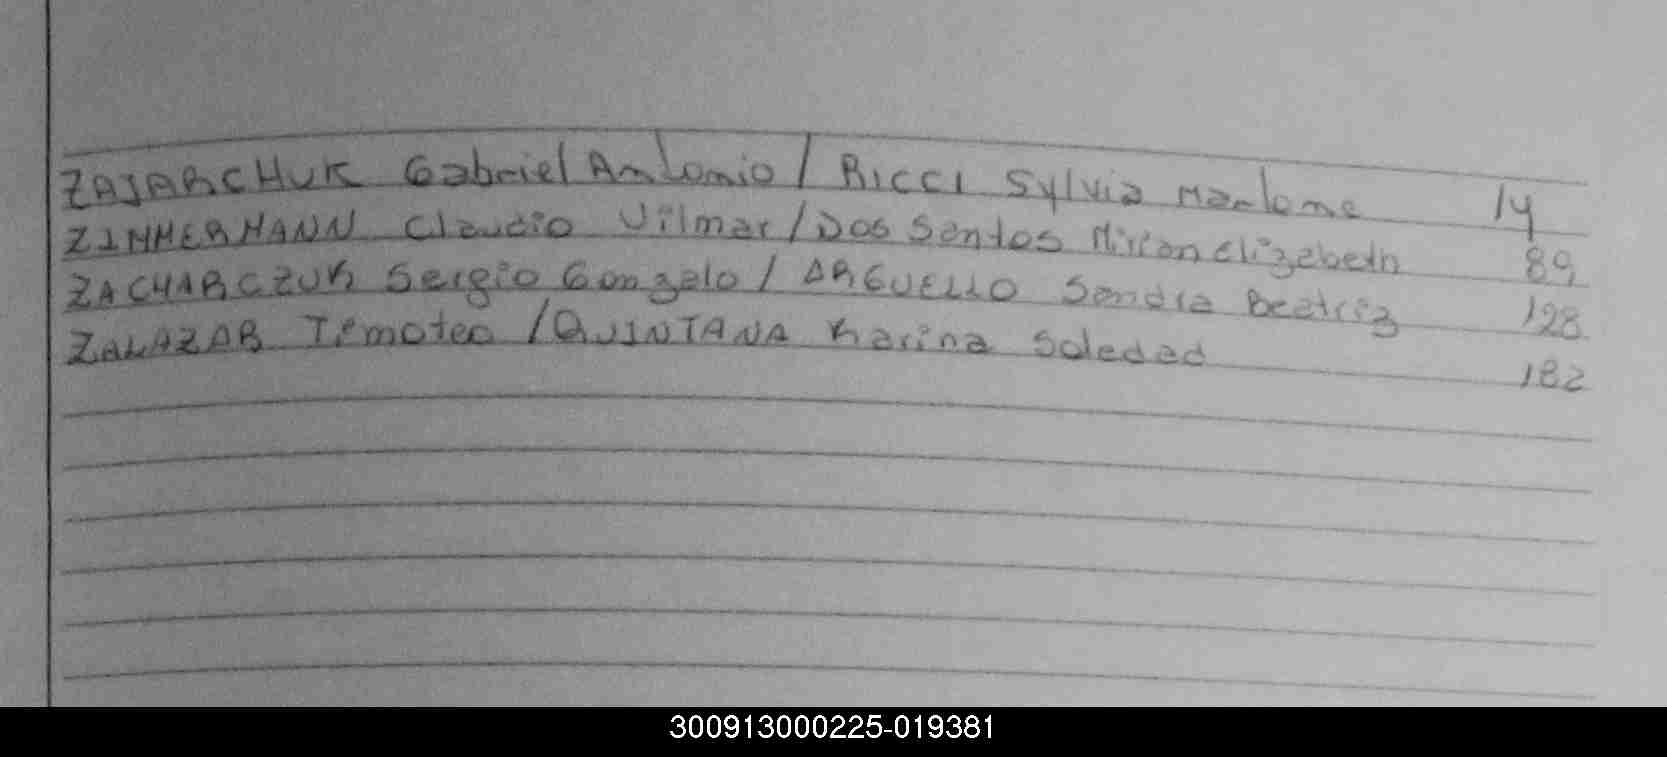 ZAJARCHUK Gabriel Antonio / RICCI Sylvia Marlene 14
ZIMMERMANN Claudio Vilmar / Dos Santos Mirian Elizabeth 89
ZACHARCZUK Sergio Gonzalo / ARGUELLO Sandra Beatriz 128
ZALAZAR Timoteo / QUINTANA Karina Soledad 182
300913000225-019381